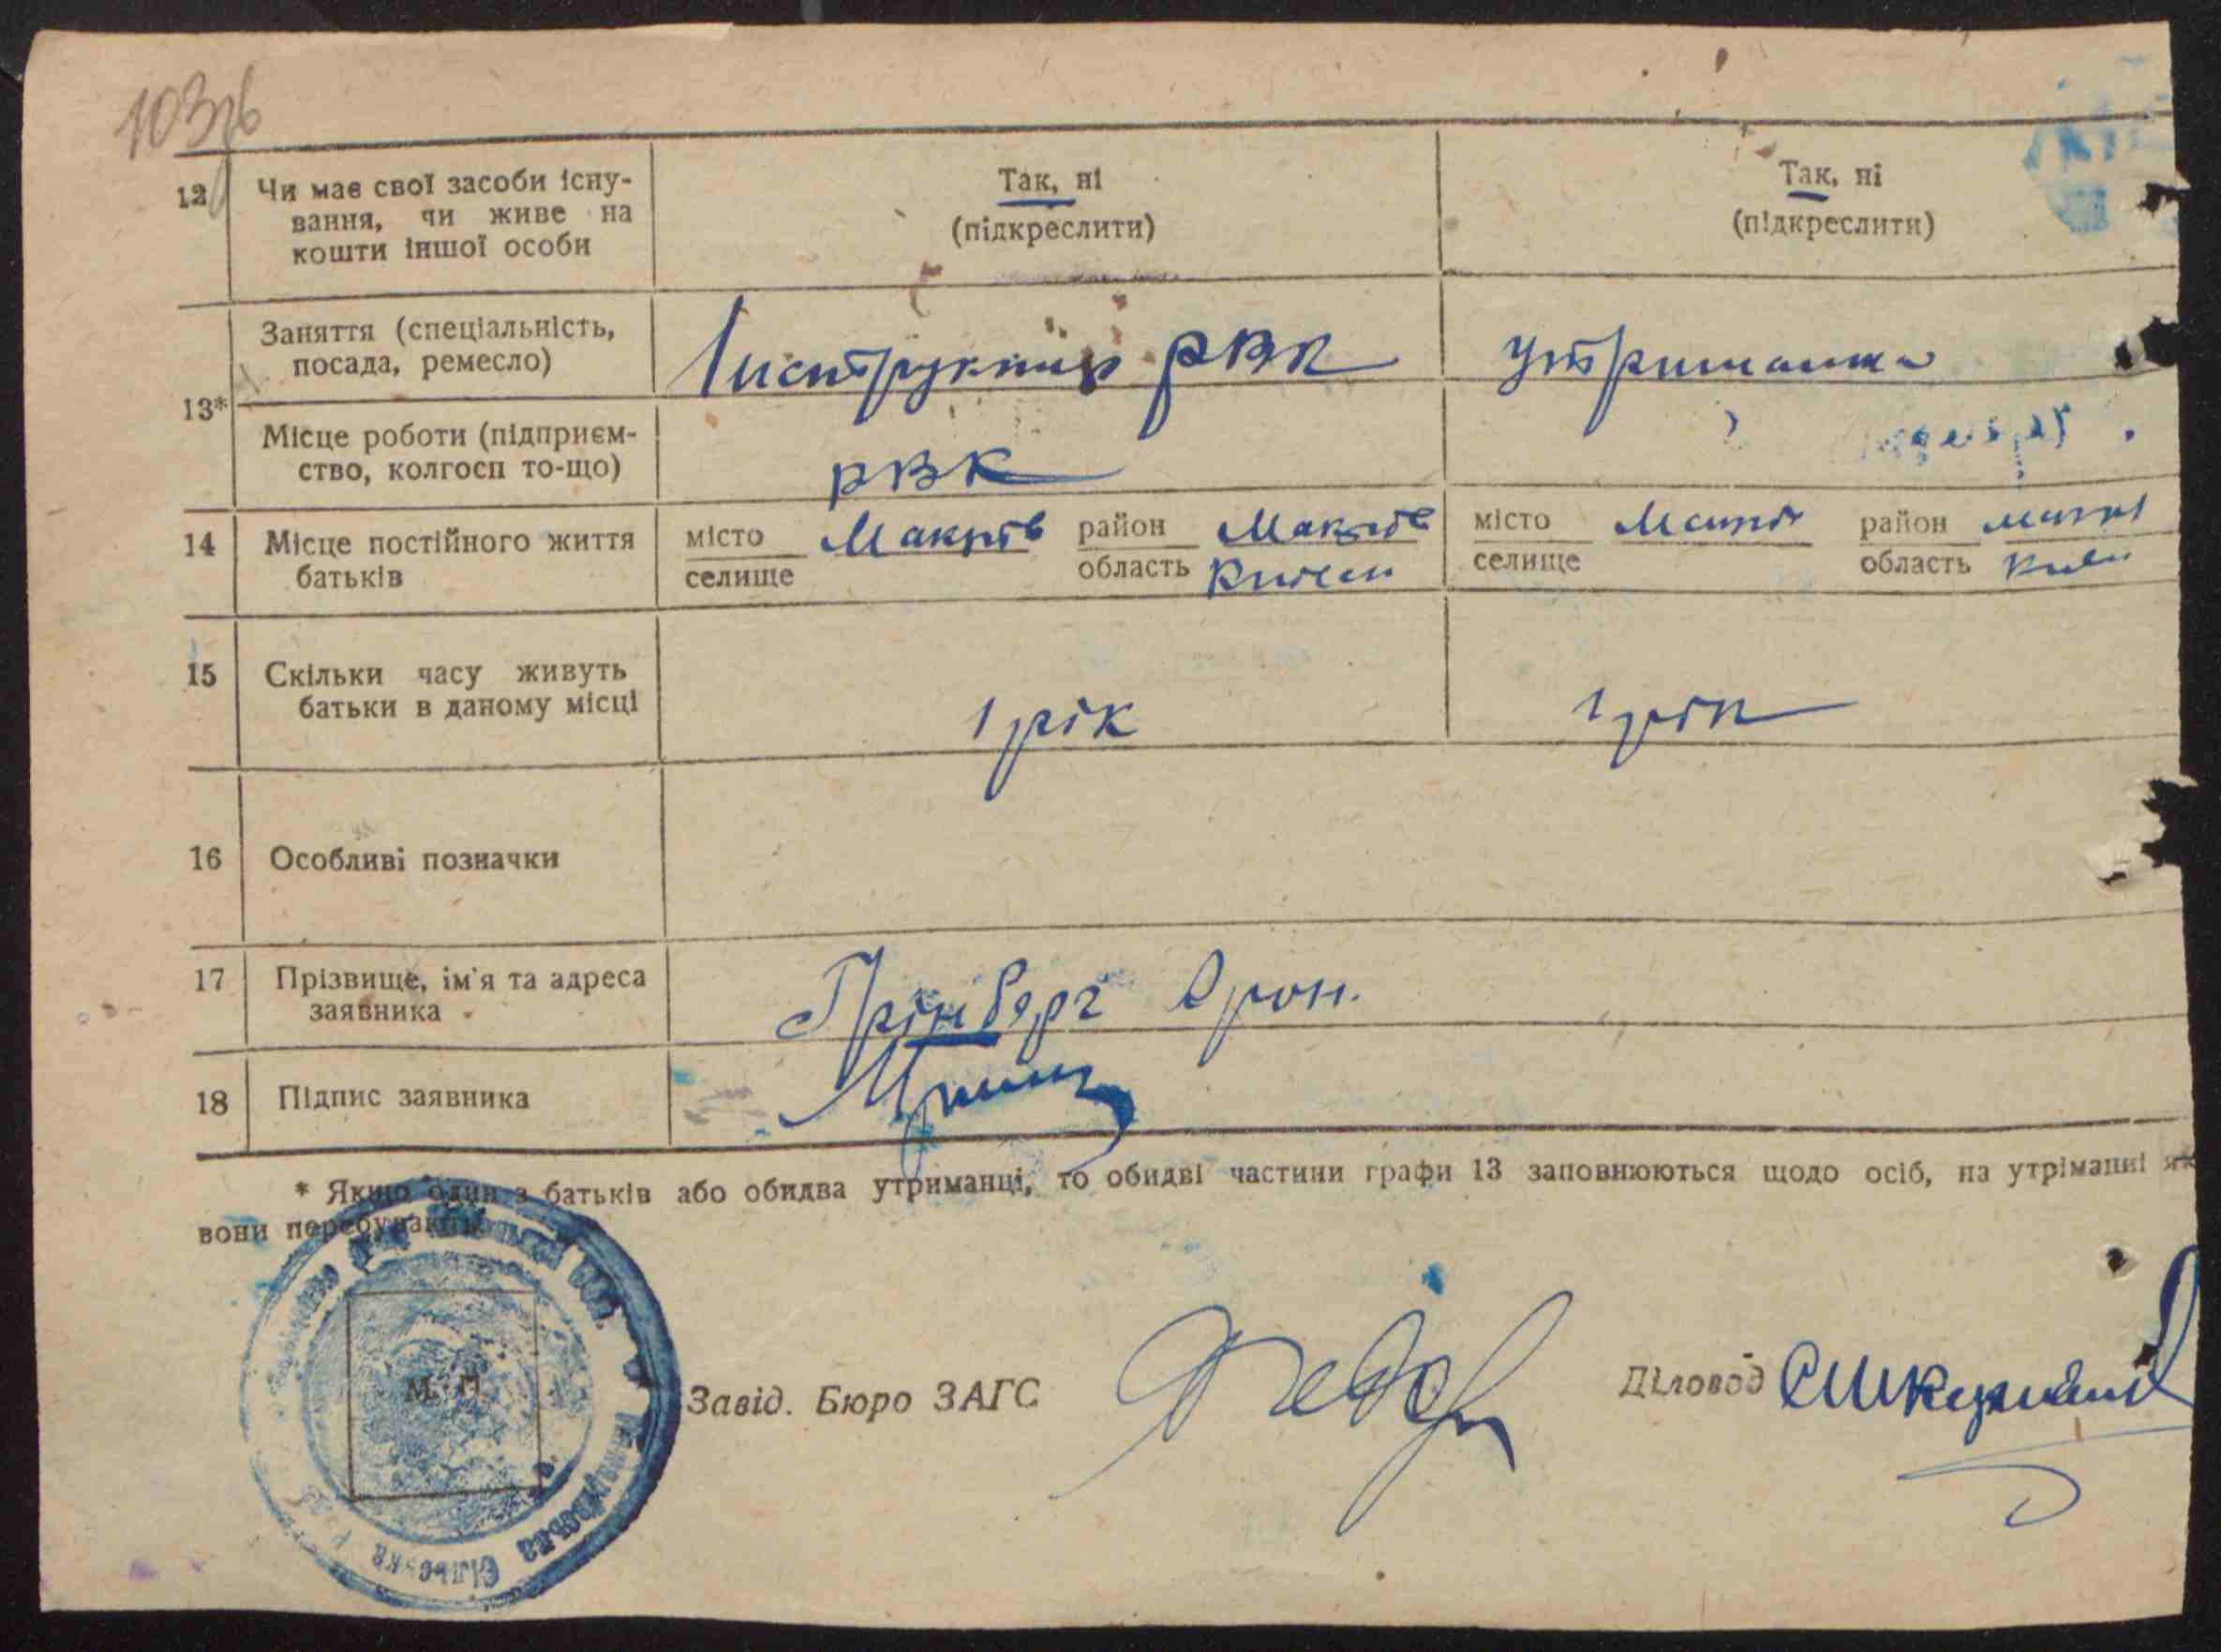 103зб
12 Чи має свої засоби існу-
вання, чи живе на
кошти іншої особи
Так, ні
(підкреслити)
Так, ні
(підкреслити)
13*
Заняття (спеціальність,
посада, ремесло)
Інструктор РВК
утриманка
Місце роботи (підприєм-
ство, колгосп то-що)
РВК
14 Місце постійного життя
батьків
місто Макарів район Макарів
селище область Київськ
місто район
селище область Київ
15 Скільки часу живуть
батьки в даному місці
1 рік
1 рік
16 Особливі позначки
17 Прізвище, ім'я та адреса
заявника
Грінберг Арон.
18 Підпис заявника
* Якщо один з батьків або обидва утриманці, то обидві частини графи 13 заповнюються щодо осіб, на утріманні як
вони перебувають
М. П.
Сільська
Завід. Бюро ЗАГС
Діловод